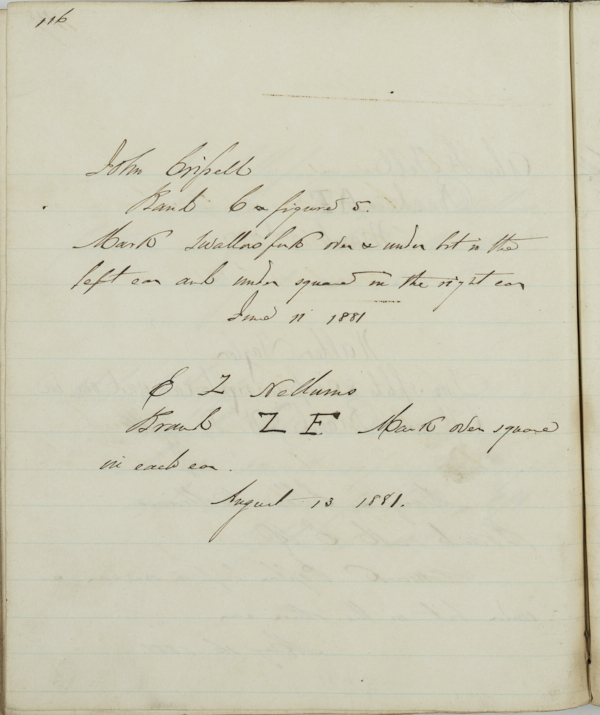 116
John Crissell
Brand C & figure 5.
Mark Swallowfork over & under bit in the
left ear and under square in the right ear
June 11 1881
E Z Nellums
Brand Z E. Mark over square
in each ear.
August 13 1881.